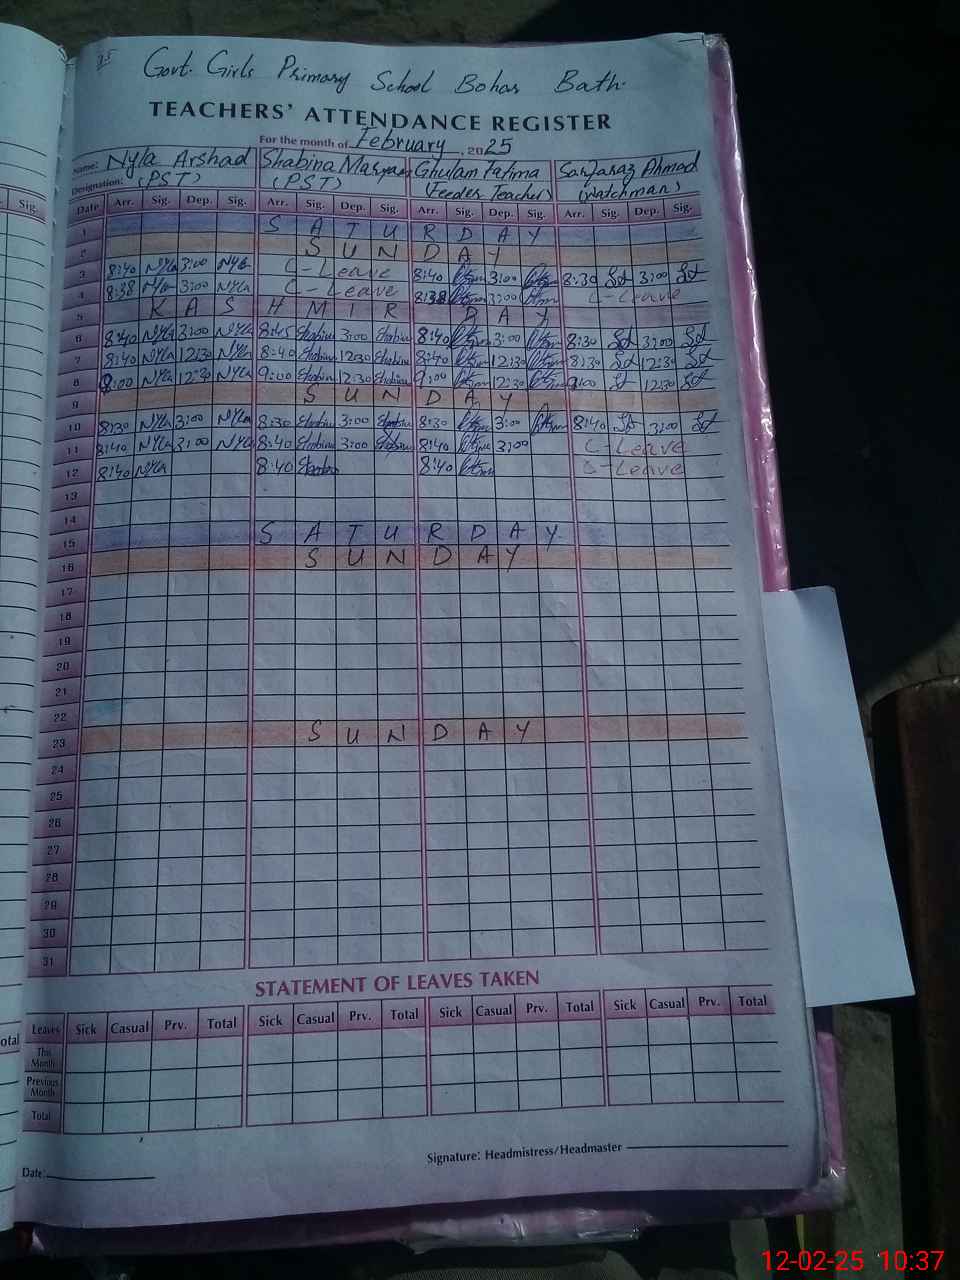 Govt. Girls Primary School Bohar Bath.
TEACHERS' ATTENDANCE REGISTER
For the month of February, 2025
Name: Nyla Arshad Shabina Maryam Ghulam Fatima Sarfaraz Ahmad
Designation: (PST) (PST) (Feeder Teacher) (Watchman)
Sig. Date Arr. Sig. Dep. Sig. Arr. Sig. Dep. Sig. Arr. Sig. Dep. Sig. Arr. Sig. Dep. Sig.
1 SATURDAY
2 SUNDAY
3 8:40 Nyla 3:00 Nyla C-Leave 8:40 3:00 8:30 3:00
4 8:38 Nyla 3:00 Nyla C-Leave 8:38 3:00 C-Leave
5 KASHMIR DAY
6 8:40 Nyla 3:00 Nyla 8:45 Shabina 3:00 Shabina 8:40 3:00 8:30 3:00
7 8:40 Nyla 12:30 Nyla 8:40 Shabina 12:30 Shabina 8:40 12:30 8:30 12:30
8 9:00 Nyla 12:30 Nyla 9:00 Shabina 12:30 Shabina 9:00 12:30 9:00 12:30
9 SUNDAY
10 8:30 Nyla 3:00 Nyla 8:30 Shabina 3:00 Shabina 8:30 3:00 8:40 3:00
11 8:40 Nyla 3:00 Nyla 8:40 Shabina 3:00 Shabina 8:40 3:00 C-Leave
12 8:40 Nyla 8:40 Shabina 8:40 C-Leave
13
14
15 SATURDAY
16 SUNDAY
17
18
19
20
21
22
23 SUNDAY
24
25
26
27
28
29
30
31
STATEMENT OF LEAVES TAKEN
Leaves Sick Casual Prv. Total Sick Casual Prv. Total Sick Casual Prv. Total Sick Casual Prv. Total
This Month
Previous Month
Total
Date: Signature: Headmistress/Headmaster
12-02-25 10:37